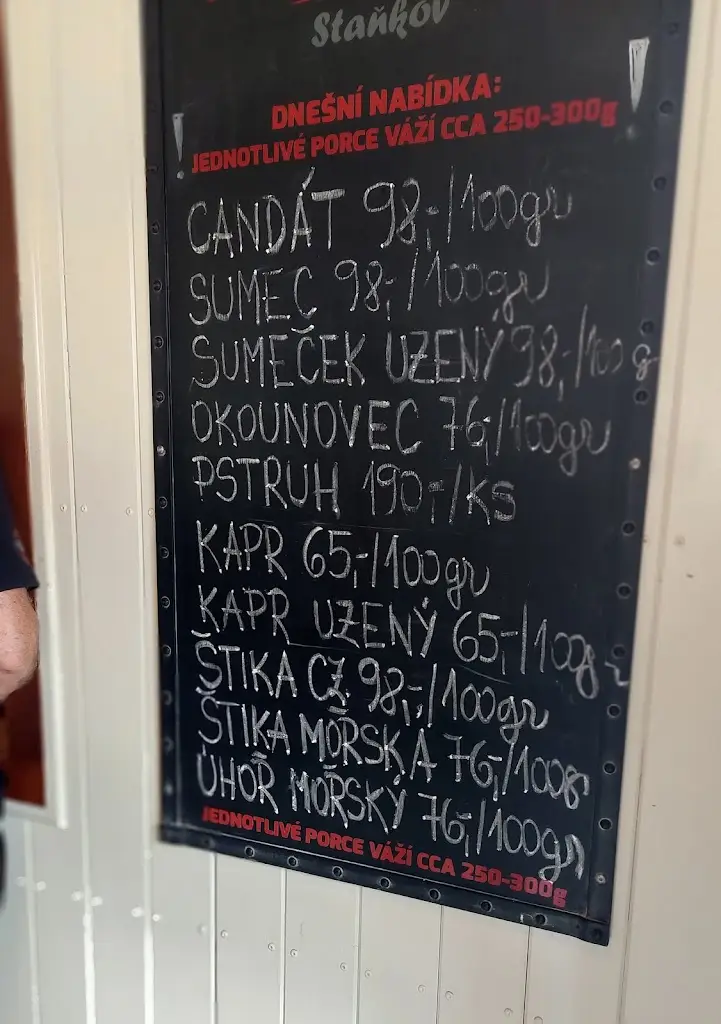 Staňkov
DNEŠNÍ NABÍDKA:
! JEDNOTLIVÉ PORCE VÁŽÍ CCA 250-300g !
CANDÁT 98,-/100gr
SUMEC 98,-/100gr
SUMEČEK UZENÝ 98,-/100g
OKOUNOVEC 76,-/100gr
PSTRUH 190,-/KS
KAPR 65,-/100gr
KAPR UZENÝ 65,-/100gr
ŠTIKA CZ 98,-/100gr
ŠTIKA MOŘSKÁ 76,-/100g
ÚHOŘ MOŘSKÝ 76,-/100gr
JEDNOTLIVÉ PORCE VÁŽÍ CCA 250-300g